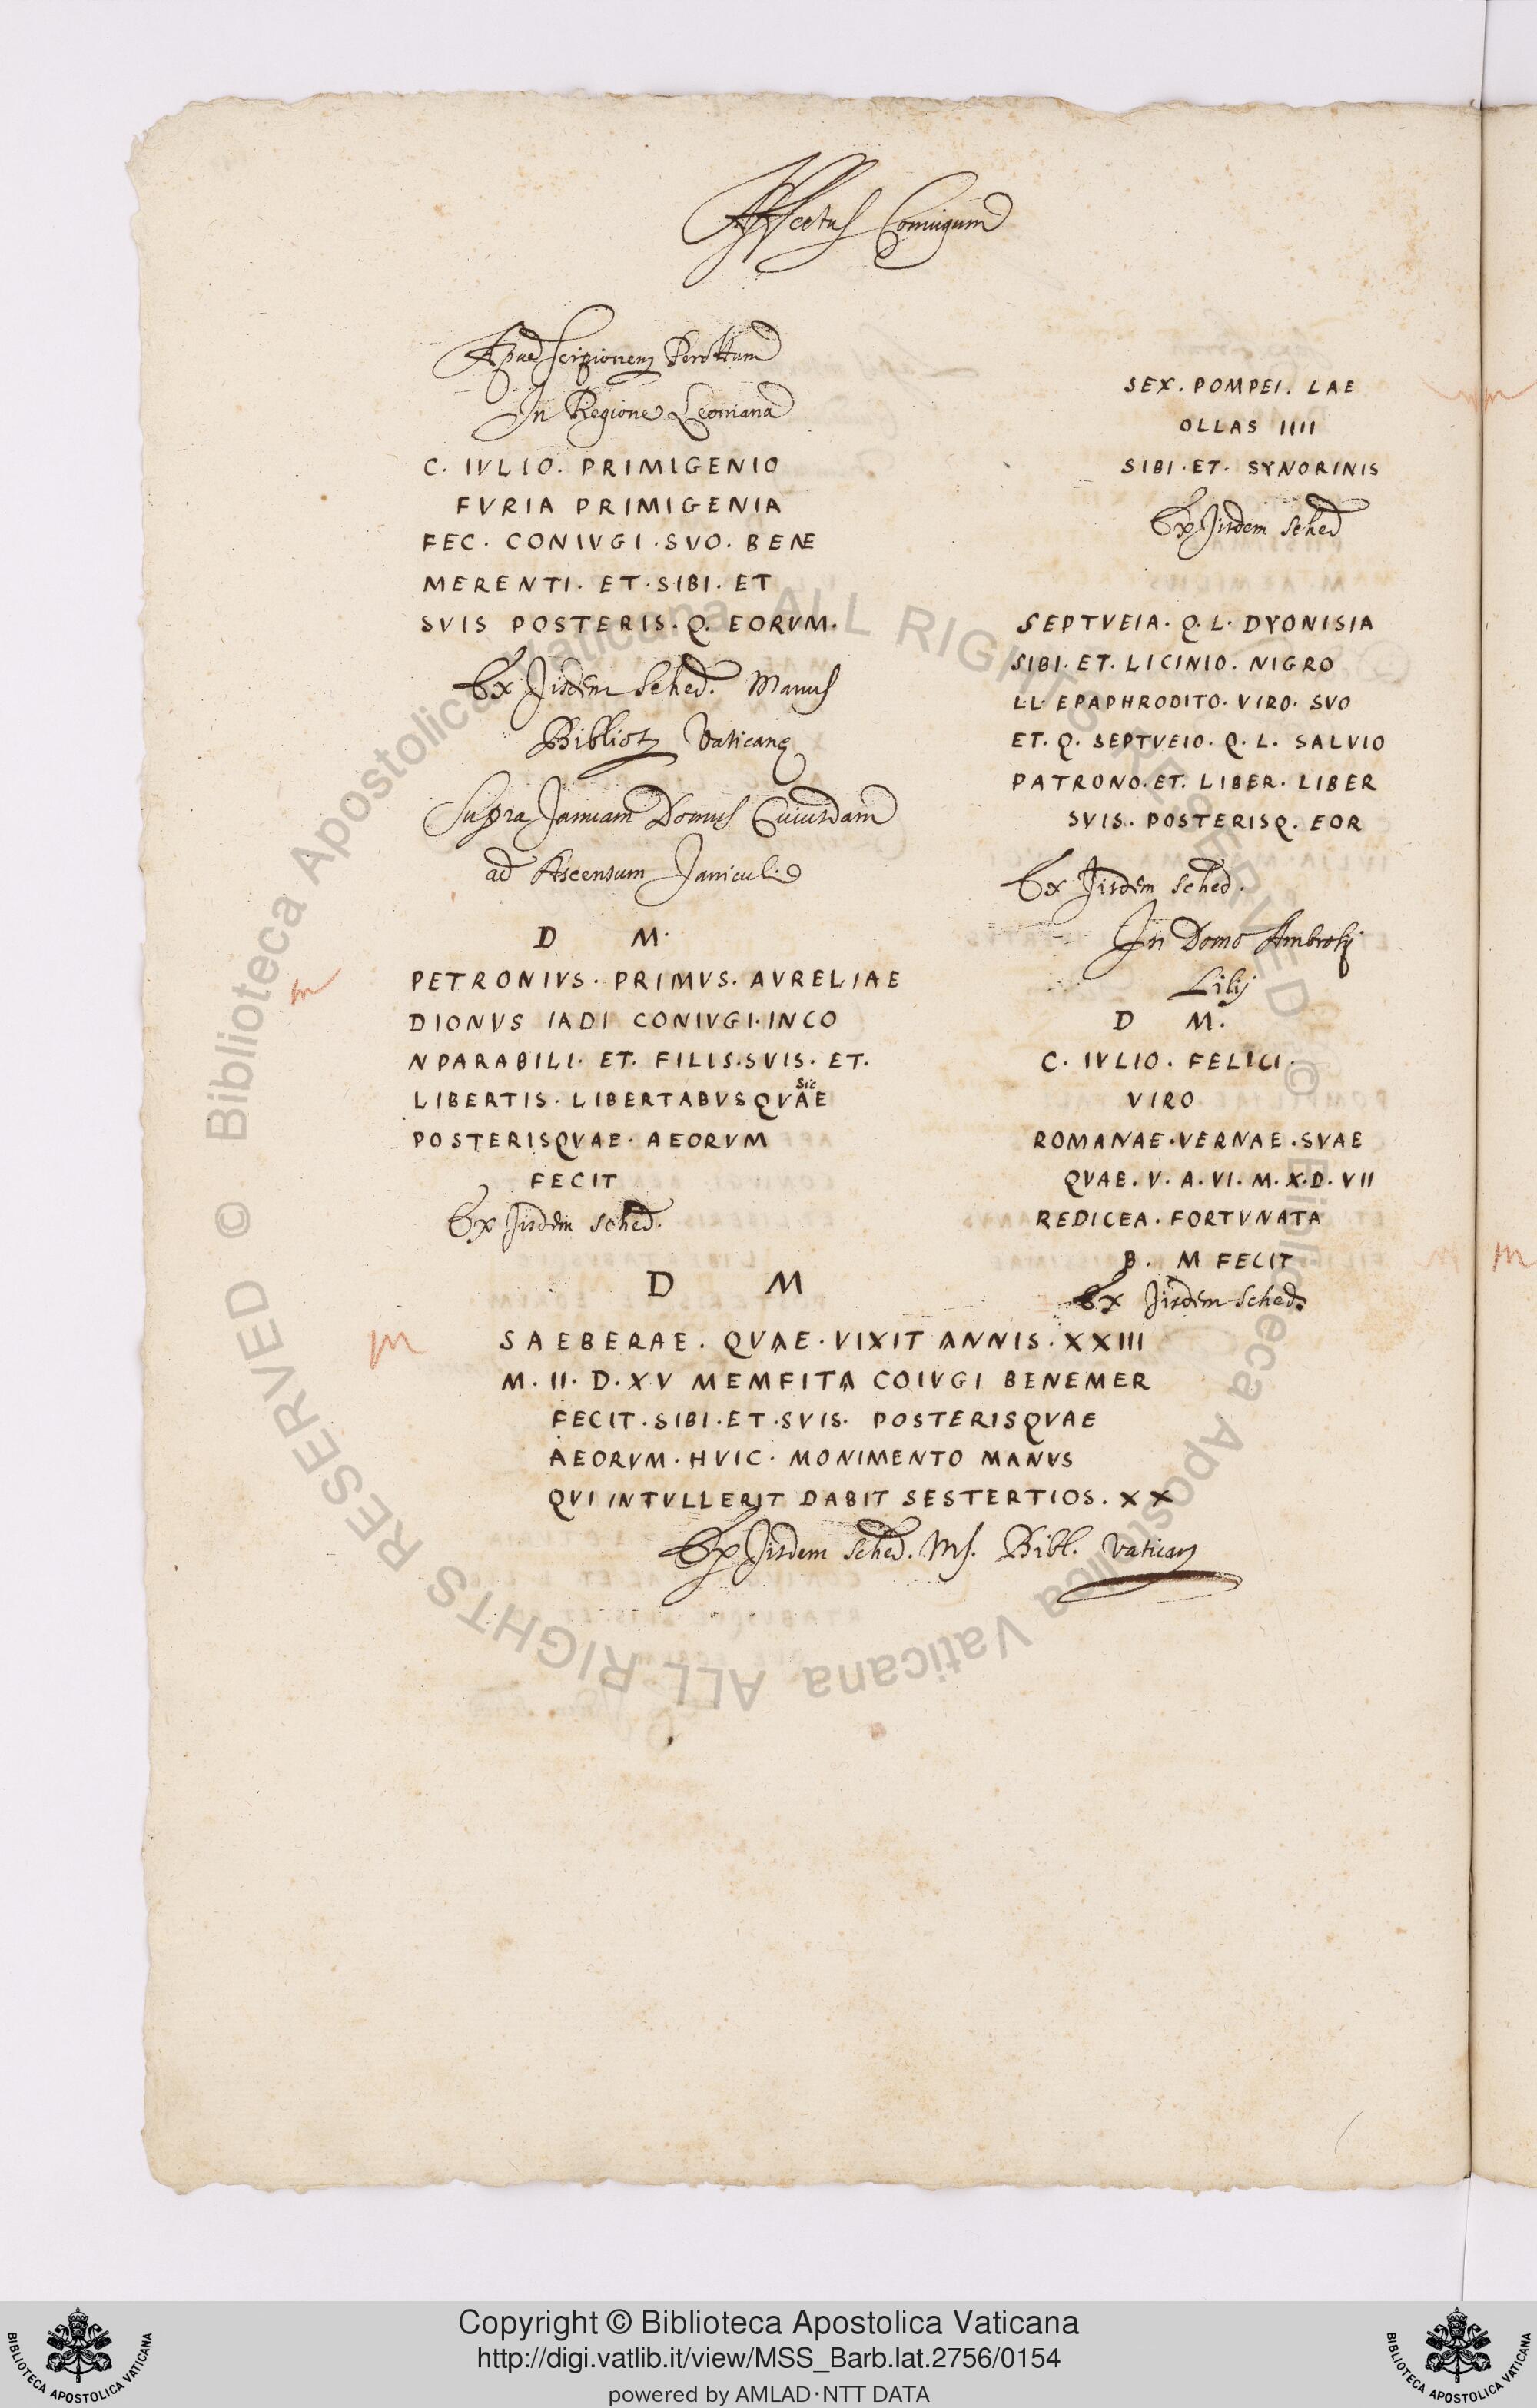 Affectus Coniugum
Apud Scipionem Perottum
In Regione Leoniana
C. IVLIO. PRIMIGENIO
FVRIA PRIMIGENIA
FEC. CONIVGI. SVO. BENE
MERENTI. ET. SIBI. ET
SVIS POSTERIS. Q. EORVM.
Ex Jisdem Sched. Manus
Bibliot Vaticanę
Supra Januam Domus Cuiusdam
ad Ascensum Janiculi
D M.
PETRONIVS. PRIMVS. AVRELIAE
DIONVS IADI CONIVGI. INCO
NPARABILI. ET. FILIS. SVIS. ET.
sic
LIBERTIS. LIBERTABVSQVAE
POSTERISQVAE. AEORVM
FECIT
Ex Jisdem Sched.
SEX. POMPEI. LAE
OLLAS IIII
SIBI. ET. SYNORINIS
Ex Jisdem Sched
SEPTVEIA. Q. L. DYONISIA
SIBI. ET. LICINIO. NIGRO
L.L. EPAPHRODITO. VIRO. SVO
ET. Q. SEPTVEIO. Q. L. SALVIO
PATRONO. ET. LIBER. LIBER
SVIS. POSTERISQ. EOR
Ex Jisdem Sched.
In Domo Ambrosij
Lilij
D M.
C. IVLIO. FELICI.
VIRO
ROMANAE. VERNAE. SVAE
QVAE. V. A. VI. M. X. D. VII
REDICEA. FORTVNATA
B. M FECIT
Ex Jisdem Sched.
D M
SAEBERAE. QVAE. VIXIT ANNIS. XXIII
M. II. D. XV MEMFITA COIVGI BENEMER
FECIT. SIBI. ET. SVIS. POSTERISQVAE
AEORVM. HVIC. MONIMENTO MANVS
QVI INTVLLERIT DABIT SESTERTIOS. XX
Ex Jisdem Sched. Ms. Bibl. Vatican
© Biblioteca Apostolica Vaticana ALL RIGHTS RESERVED
© Biblioteca Apostolica Vaticana ALL RIGHTS RESERVED
BIBLIOTECA APOSTOLICA VATICANA
Copyright © Biblioteca Apostolica Vaticana
http://digi.vatlib.it/view/MSS_Barb.lat.2756/0154
powered by AMLAD·NTT DATA
BIBLIOTECA APOSTOLICA VATICANA